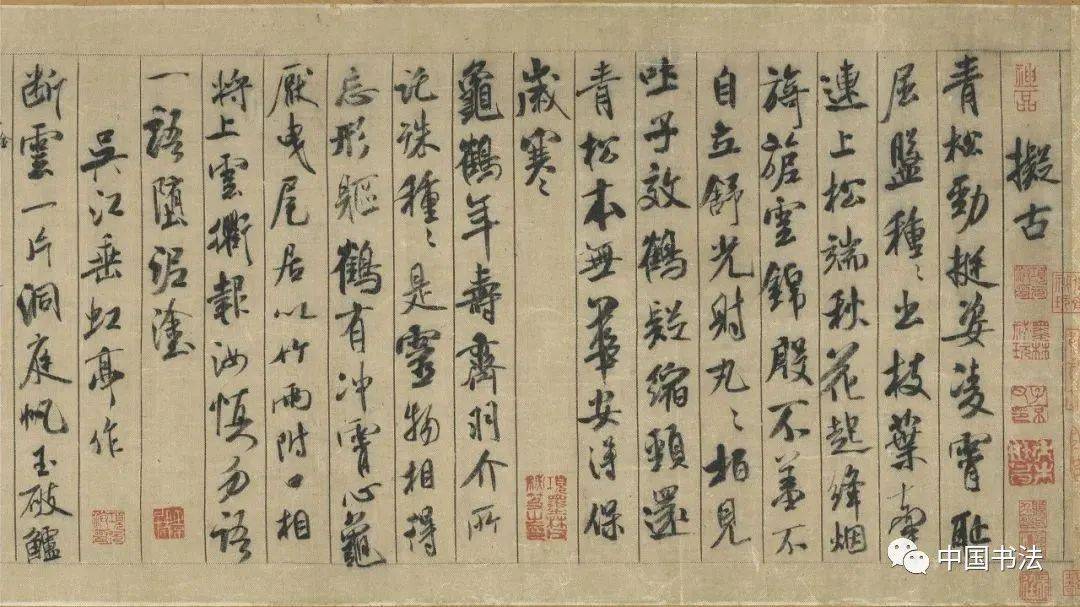 神品
擬古
青松勁挺姿凌霄恥
屈盤種〻出枝葉牽
連上松端秋花起絳烟
旖旎雲錦殷不羞不
自立舒光射丸〻柏見
吐子效鶴疑縮頸還
青松本無華安得保
歲寒〻
龜鶴年壽齊羽介所
託殊種〻是靈物相得
忘形軀鶴有冲霄心龜
厭曳尾居以竹兩附口相
將上雲衢報汝慎勿語
一語墮泥塗
吳江垂虹亭作
断雲一片洞庭帆玉破鱸
中国书法